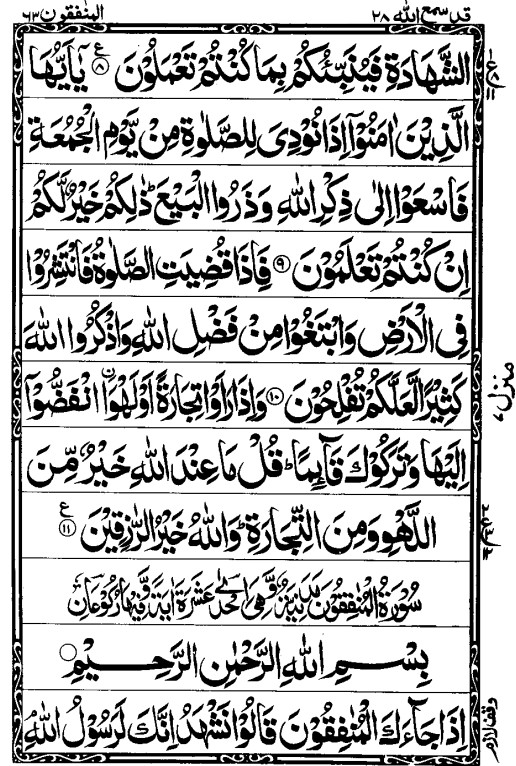 قد سمع الله ٢٨
المنٰفقون ٦٣
الشَّهَادَةِ فَيُنَبِّئُكُمْ بِمَا كُنْتُمْ تَعْمَلُوْنَ ۸ ع يٰۤاَيُّهَا
الَّذِيْنَ اٰمَنُوْۤا اِذَا نُوْدِىَ لِلصَّلٰوةِ مِنْ يَّوْمِ الْجُمُعَةِ
فَاسْعَوْا اِلٰى ذِكْرِ اللّٰهِ وَذَرُوا الْبَيْعَ ؕ ذٰلِكُمْ خَيْرٌ لَّكُمْ
اِنْ كُنْتُمْ تَعْلَمُوْنَ ۹ فَاِذَا قُضِيَتِ الصَّلٰوةُ فَانْتَشِرُوْا
فِى الْاَرْضِ وَابْتَغُوْا مِنْ فَضْلِ اللّٰهِ وَاذْكُرُوا اللّٰهَ
كَثِيْرًا لَّعَلَّكُمْ تُفْلِحُوْنَ ۱۰ وَاِذَا رَاَوْا تِجَارَةً اَوْ لَهْوَا۟ ۨانْفَضُّوْۤا
اِلَيْهَا وَتَرَكُوْكَ قَآئِمًا ؕ قُلْ مَا عِنْدَ اللّٰهِ خَيْرٌ مِّنَ
اللَّهْوِ وَمِنَ التِّجَارَةِ ؕ وَاللّٰهُ خَيْرُ الرّٰزِقِيْنَ ۱۱ ع
سُوْرَةُ الْمُنٰفِقُوْنَ مَدَنِيَّةٌ وَّهِىَ اِحْدٰى عَشْرَةَ اٰيَةً وَّفِيْهَا رُكُوْعَانِ
بِسْمِ اللّٰهِ الرَّحْمٰنِ الرَّحِيْمِ
اِذَا جَآءَكَ الْمُنٰفِقُوْنَ قَالُوْا نَشْهَدُ اِنَّكَ لَرَسُوْلُ اللّٰهِ
منزل ٧
وقف لازم